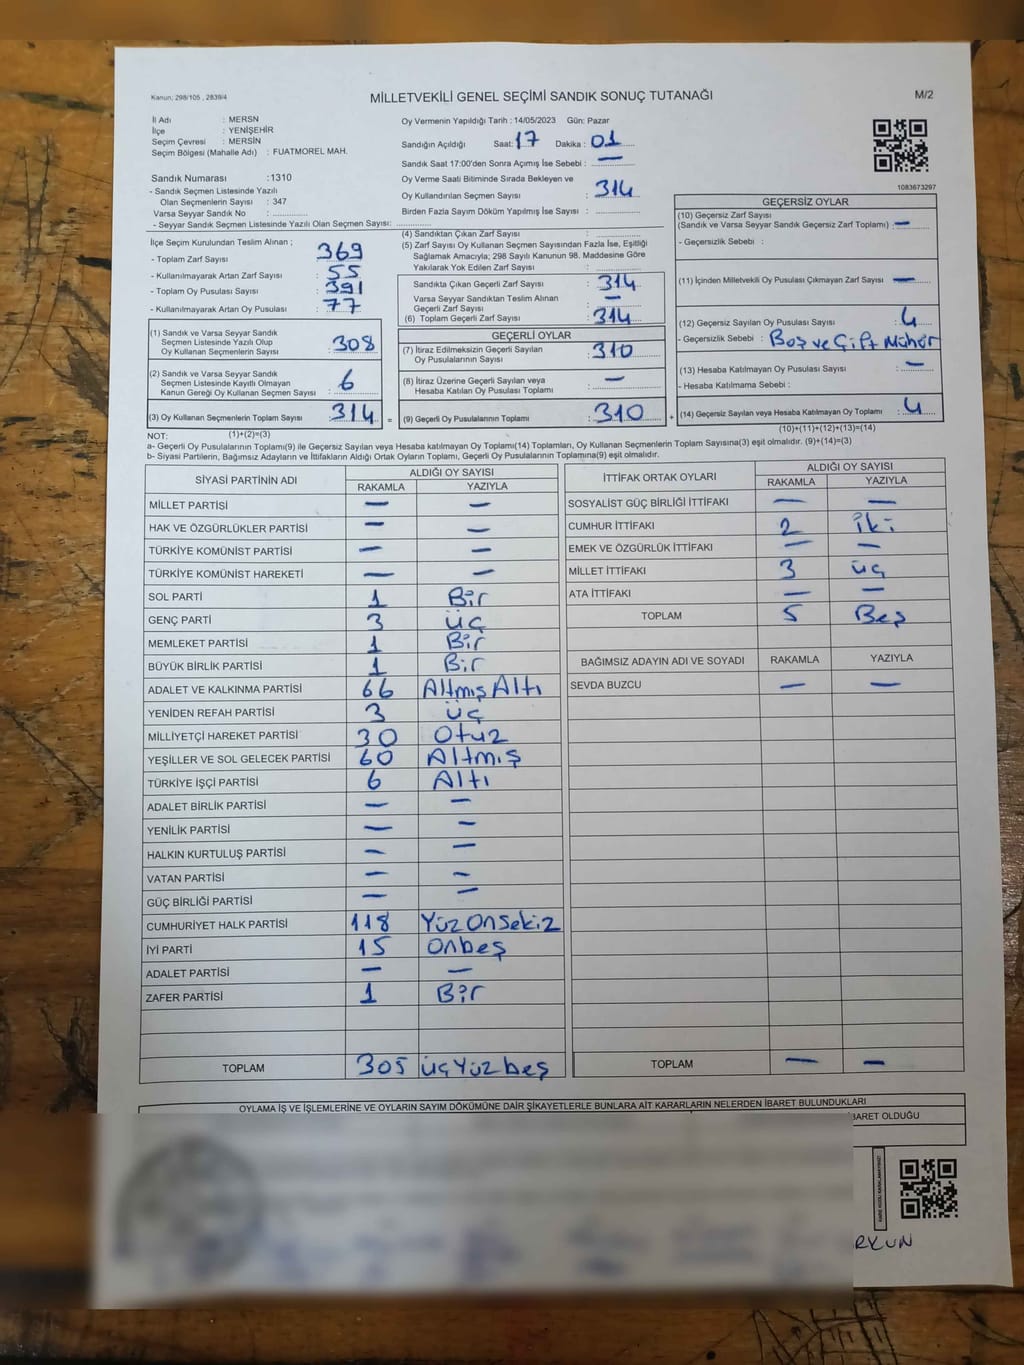 Kanun: 298/105 , 2839/4
MİLLETVEKİLİ GENEL SEÇİMİ SANDIK SONUÇ TUTANAĞI
M/2
İl Adı : MERSN
İlçe : YENİŞEHİR
Seçim Çevresi : MERSİN
Seçim Bölgesi (Mahalle Adı) : FUATMOREL MAH.
Sandık Numarası :1310
- Sandık Seçmen Listesinde Yazılı
Olan Seçmenlerin Sayısı : 347
Varsa Seyyar Sandık No : ..............
- Seyyar Sandık Seçmen Listesinde Yazılı Olan Seçmen Sayısı: ..............
Oy Vermenin Yapıldığı Tarih : 14/05/2023 Gün: Pazar
Sandığın Açıldığı Saat: 17 Dakika : 01
Sandık Saat 17:00'den Sonra Açımış İse Sebebi : —
Oy Verme Saati Bitiminde Sırada Bekleyen ve
Oy Kullandırılan Seçmen Sayısı : 314
Birden Fazla Sayım Döküm Yapılmış İse Sayısı : ..............
1083673297
İlçe Seçim Kurulundan Teslim Alınan ;
- Toplam Zarf Sayısı : 369
- Kullanılmayarak Artan Zarf Sayısı : 55
- Toplam Oy Pusulası Sayısı : 391
- Kullanılmayarak Artan Oy Pusulası : 77
(1) Sandık ve Varsa Seyyar Sandık
Seçmen Listesinde Yazılı Olup
Oy Kullanan Seçmenlerin Sayısı : 308
(2) Sandık ve Varsa Seyyar Sandık
Seçmen Listesinde Kayıtlı Olmayan
Kanun Gereği Oy Kullanan Seçmen Sayısı : 6
(3) Oy Kullanan Seçmenlerin Toplam Sayısı : 314 =
(1)+(2)=(3)
(4) Sandıktan Çıkan Zarf Sayısı : ..............
(5) Zarf Sayısı Oy Kullanan Seçmen Sayısından Fazla İse, Eşitliği
Sağlamak Amacıyla; 298 Sayılı Kanunun 98. Maddesine Göre
Yakılarak Yok Edilen Zarf Sayısı : ..............
Sandıkta Çıkan Geçerli Zarf Sayısı : 314
Varsa Seyyar Sandıktan Teslim Alınan
Geçerli Zarf Sayısı : —
(6) Toplam Geçerli Zarf Sayısı : 314
GEÇERLİ OYLAR
(7) İtiraz Edilmeksizin Geçerli Sayılan
Oy Pusulalarının Sayısı : 310
(8) İtiraz Üzerine Geçerli Sayılan veya
Hesaba Katılan Oy Pusulası Toplamı : —
(9) Geçerli Oy Pusulalarının Toplamı : 310 +
GEÇERSİZ OYLAR
(10) Geçersiz Zarf Sayısı
(Sandık ve Varsa Seyyar Sandık Geçersiz Zarf Toplamı) : —
- Geçersizlik Sebebi :
(11) İçinden Milletvekili Oy Pusulası Çıkmayan Zarf Sayısı : —
(12) Geçersiz Sayılan Oy Pusulası Sayısı : 4
- Geçersizlik Sebebi : Boş ve Çift Mühür
(13) Hesaba Katılmayan Oy Pusulası Sayısı : —
- Hesaba Katılmama Sebebi :
(14) Geçersiz Sayılan veya Hesaba Katılmayan Oy Toplamı : 4
(10)+(11)+(12)+(13)=(14)
NOT:
a- Geçerli Oy Pusulalarının Toplamı(9) ile Geçersiz Sayılan veya Hesaba katılmayan Oy Toplamı(14) Toplamları, Oy Kullanan Seçmenlerin Toplam Sayısına(3) eşit olmalıdır. (9)+(14)=(3)
b- Siyasi Partilerin, Bağımsız Adayların ve İttifakların Aldığı Ortak Oyların Toplamı, Geçerli Oy Pusulalarının Toplamına(9) eşit olmalıdır.
SİYASİ PARTİNİN ADI ALDIĞI OY SAYISI
RAKAMLA YAZIYLA
MİLLET PARTİSİ — —
HAK VE ÖZGÜRLÜKLER PARTİSİ — —
TÜRKİYE KOMÜNİST PARTİSİ — —
TÜRKİYE KOMÜNİST HAREKETİ — —
SOL PARTİ 1 Bir
GENÇ PARTİ 3 üç
MEMLEKET PARTİSİ 1 Bir
BÜYÜK BİRLİK PARTİSİ 1 Bir
ADALET VE KALKINMA PARTİSİ 66 Altmış Altı
YENİDEN REFAH PARTİSİ 3 üç
MİLLİYETÇİ HAREKET PARTİSİ 30 Otuz
YEŞİLLER VE SOL GELECEK PARTİSİ 60 Altmış
TÜRKİYE İŞÇİ PARTİSİ 6 Altı
ADALET BİRLİK PARTİSİ — —
YENİLİK PARTİSİ — —
HALKIN KURTULUŞ PARTİSİ — —
VATAN PARTİSİ — —
GÜÇ BİRLİĞİ PARTİSİ — —
CUMHURİYET HALK PARTİSİ 118 Yüz Onsekiz
İYİ PARTİ 15 Onbeş
ADALET PARTİSİ — —
ZAFER PARTİSİ 1 Bir
TOPLAM 305 üçYüz beş
İTTİFAK ORTAK OYLARI ALDIĞI OY SAYISI
RAKAMLA YAZIYLA
SOSYALİST GÜÇ BİRLİĞİ İTTİFAKI — —
CUMHUR İTTİFAKI 2 İki
EMEK VE ÖZGÜRLÜK İTTİFAKI — —
MİLLET İTTİFAKI 3 üç
ATA İTTİFAKI — —
TOPLAM 5 Beş
BAĞIMSIZ ADAYIN ADI VE SOYADI RAKAMLA YAZIYLA
SEVDA BUZCU — —
TOPLAM — —
OYLAMA İŞ VE İŞLEMLERİNE VE OYLARIN SAYIM DÖKÜMÜNE DAİR ŞİKAYETLERLE BUNLARA AİT KARARLARIN NELERDEN İBARET BULUNDUKLARI
İBARET OLDUĞU